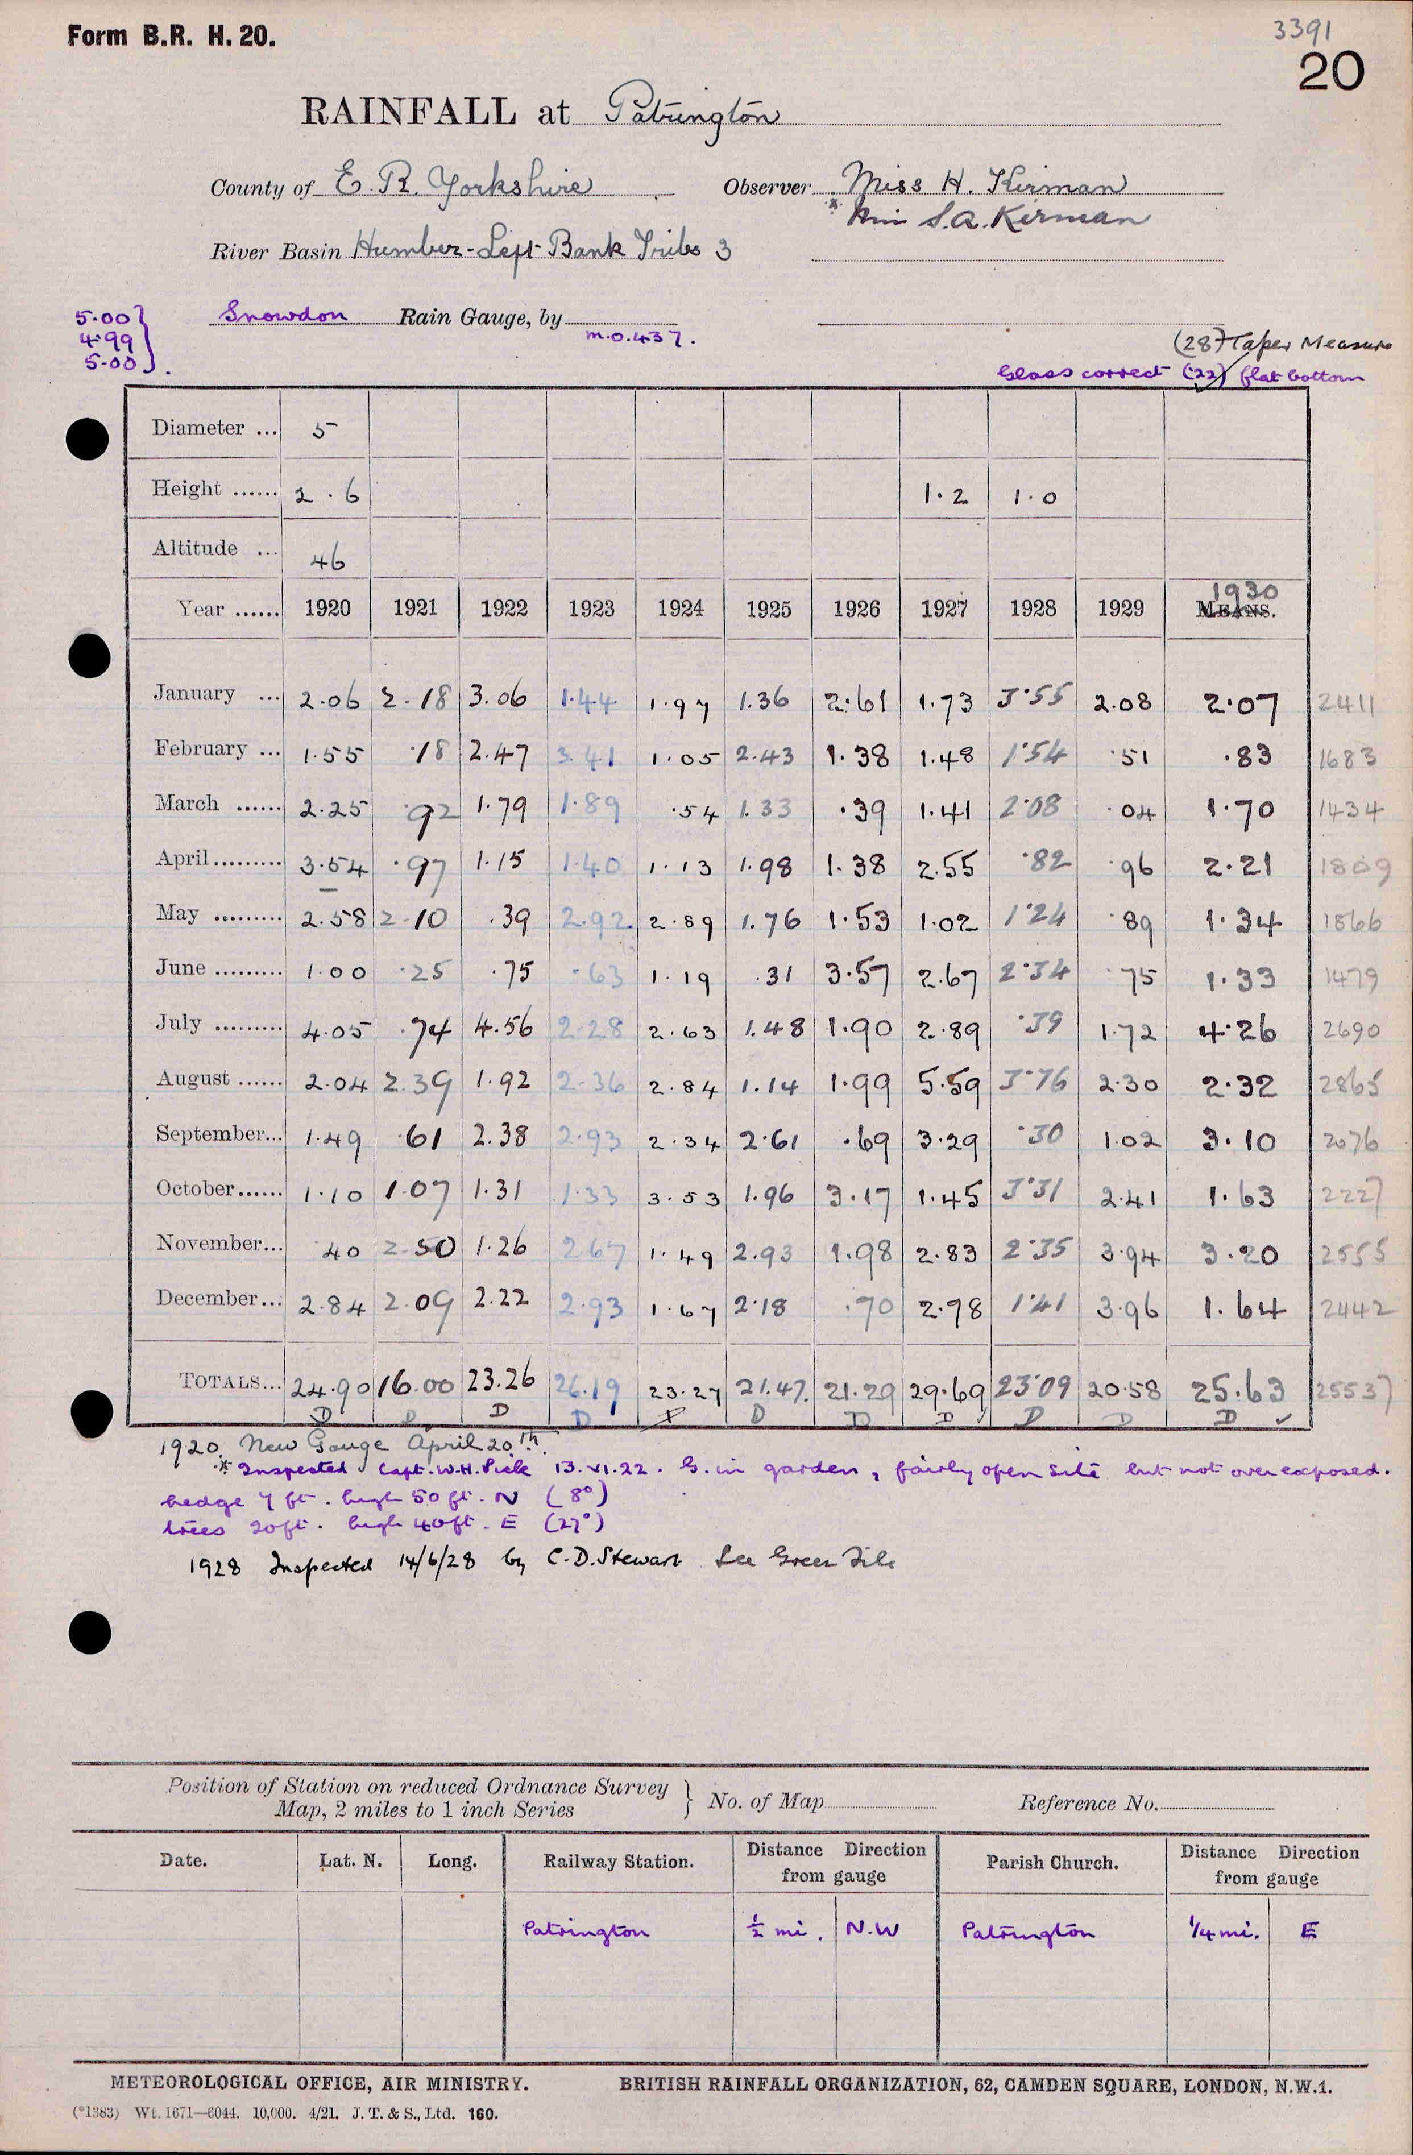 Form B.R. H. 20.
3391
20
RAINFALL at Patrington
County of E. R. Yorkshire Observer Miss H. Kirman
* Miss S.A. Kirman
River Basin Humber-Left Bank Tribs 3
5.00
4.99
5.00
Snowdon Rain Gauge, by
M.O.437.
(28) Taper Measure
Glass correct (22) flat bottom
Diameter ... 5
Height ...... 2.6 1.2 1.0
Altitude ... 46
Year ...... 1920 1921 1922 1923 1924 1925 1926 1927 1928 1929 MEANS. 1930
January ... 2.06 2.18 3.06 1.44 1.97 1.36 2.61 1.73 3.55 2.08 2.07 2411
February ... 1.55 .18 2.47 3.41 1.05 2.43 1.38 1.48 1.54 .51 .83 1683
March ...... 2.25 .92 1.79 1.89 .54 1.33 .39 1.41 2.08 .04 1.70 1434
April......... 3.54 .97 1.15 1.40 1.13 1.98 1.38 2.55 .82 .96 2.21 1809
May ......... 2.58 2.10 .39 2.92 2.89 1.76 1.53 1.02 1.24 .89 1.34 1866
June ......... 1.00 .25 .75 .63 1.19 .31 3.57 2.67 2.34 .75 1.33 1479
July ......... 4.05 .74 4.56 2.28 2.63 1.48 1.90 2.89 .39 1.72 4.26 2690
August ...... 2.04 2.39 1.92 2.36 2.84 1.14 1.99 5.59 3.76 2.30 2.32 2865
September... 1.49 .61 2.38 2.93 2.34 2.61 .69 3.29 .30 1.02 3.10 2076
October...... 1.10 1.07 1.31 1.33 3.53 1.96 3.17 1.45 3.31 2.41 1.63 2227
November... .40 2.50 1.26 2.67 1.49 2.93 1.98 2.83 2.35 3.94 3.20 2555
December... 2.84 2.09 2.22 2.93 1.67 2.18 .70 2.78 1.41 3.96 1.64 2442
TOTALS... 24.90 16.00 23.26 26.19 23.27 21.47. 21.29 29.69 23.09 20.58 25.63 25537
D D D D D D D D D D D ✓
1920. New Gauge April 20th.
* Inspected Capt. W.H. Pick 13.VI.22. G. in garden, fairly open site but not over exposed.
hedge 7 ft. high 50 ft. N (8°)
trees 20ft. high 40ft. E (27°)
1928 Inspected 14/6/28 by C.D. Stewart See Green File
Position of Station on reduced Ordnance Survey
Map, 2 miles to 1 inch Series
No. of Map Reference No.
Date. Lat. N. Long. Railway Station. Distance Direction from gauge Parish Church. Distance Direction from gauge
Patrington ½ mi. N.W Patrington ¼ mi. E
METEOROLOGICAL OFFICE, AIR MINISTRY. BRITISH RAINFALL ORGANIZATION, 62, CAMDEN SQUARE, LONDON, N.W.1.
(*1383) Wt. 1671—6044. 10,000. 4/21. J. T. & S., Ltd. 160.